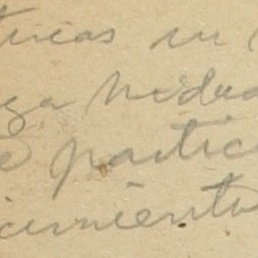 tricas in
ga hidra
e partic
cimiento